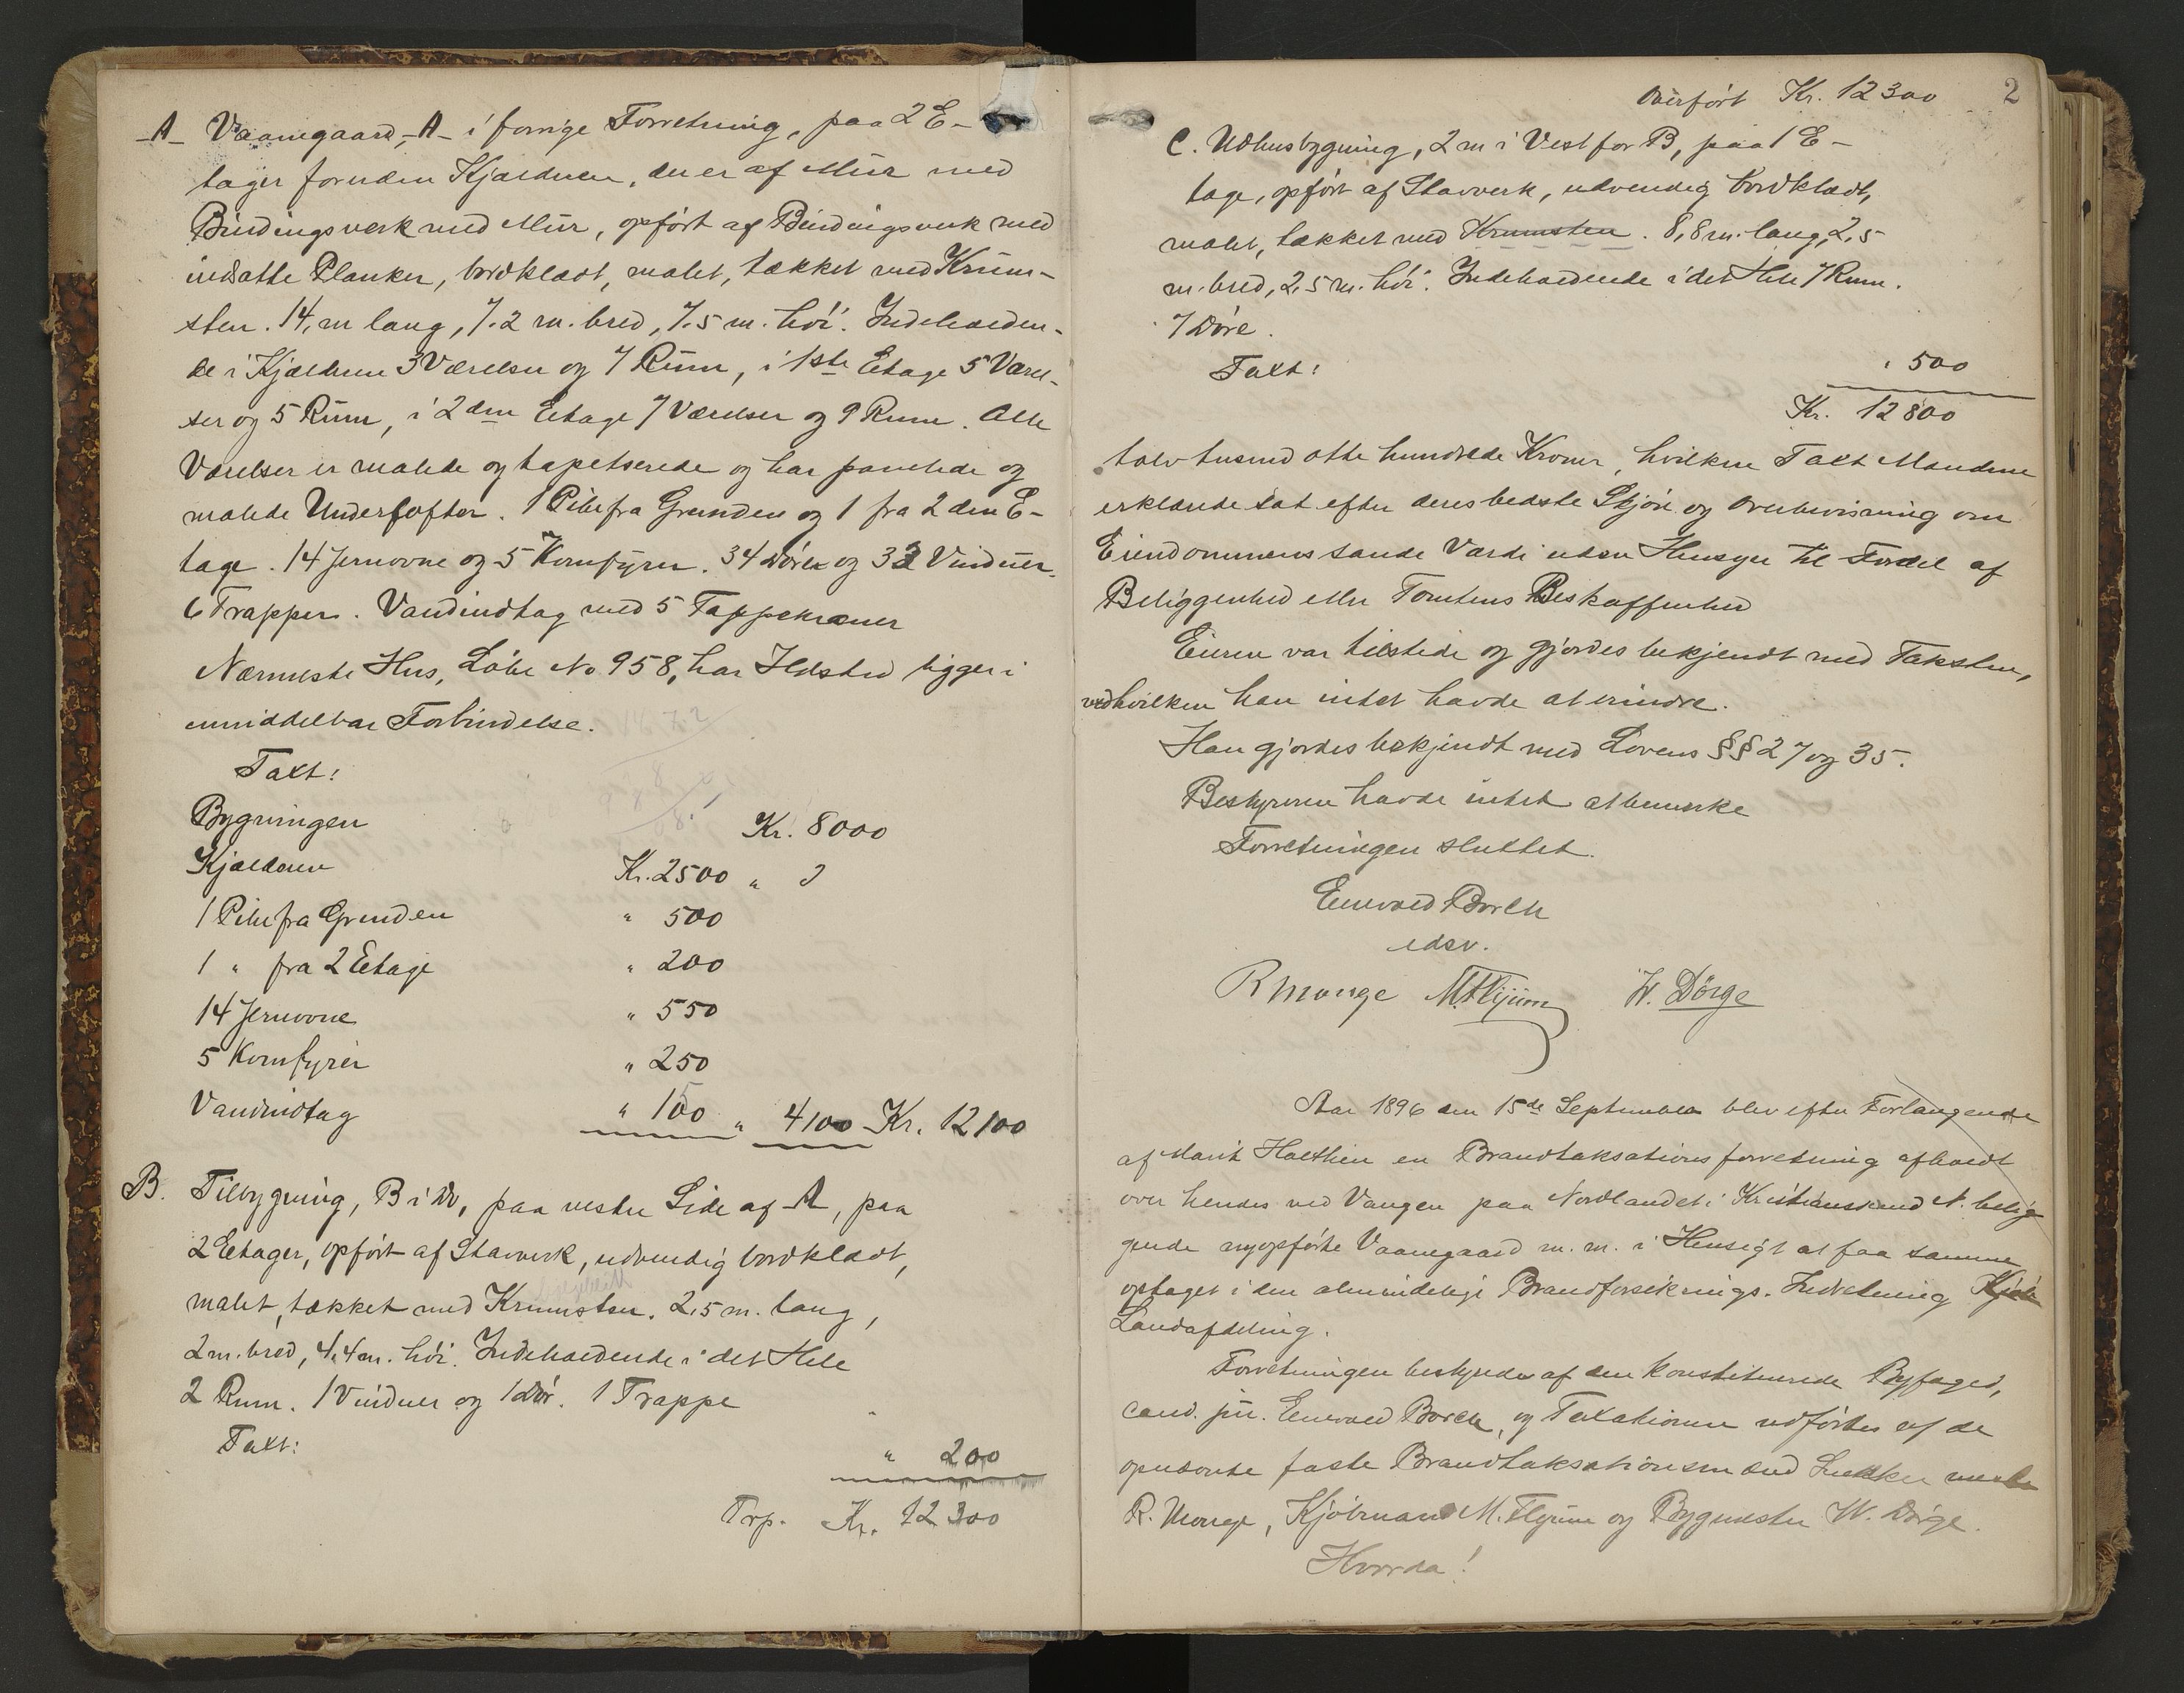 A Vaanegaard, A i forrige Forretning, paa 2 E-
tager foruden Kjælderen, der er af Mur med
Bindingsverk med Mur, opført af Bindingsverk med
indsatte Planker, bordklædt, malet, tækket med Krum-
sten. 14, m lang, 7.2 m. bred, 7.5 m. høi. Indeholden-
de i Kjælderen 3 Værelser og 7 Rum, i 1ste Etage 5 Værel-
ser og 5 Rum, i 2den Etage 7 Værelser og 9 Rum. Alle
Værelser er malede og tapetserede og har panelede og
malede Underlofter. 1 Pibe fra Grunden og 1 fra 2den E-
tage. 14 Jernovne og 5 Komfyrer. 34 Døre og 33 Vinduer.
6 Trapper. Vandindtag med 5 Tappekraner
Nærmeste Hus, Løbe No 958, har Ildsted ligger i
umiddelbar Forbindelse.
Taxt:
Bygningen Kr. 8000
Kjælderen Kr. 2500 "
1 Pibe fra Grunden " 500
1 " fra 2 Etage " 200
14 Jernovne " 550
5 Komfyrer " 250
Vandindtag " 100 " 4100 Kr. 12100
B. Tilbygning, B i Do, paa vestre Side af A, paa
2 Etager, opført af Stavverk, udvendig bordklædt,
malet, tækket med Krumsten. 2,5 m. lang,
2 m. bred, 4.4 m. høi. Indeholdende i det Hele
2 Rum. 1 Vinduer og 1 Dør. 1 Trappe
Taxt: " 200
Trp. Kr. 12300
Overført Kr. 12300 2
C. Udhusbygning, 2 m i Vest for B, paa 1 E-
tage, opført af Stavverk, udvendig bordklædt,
malet, tækket med Krumsten. 8,8 m. lang, 2,5
m. bred, 2,5 m. høi. Indeholdende i det Hele 7 Rum.
7 Døre.
Taxt: " 500
Kr. 12800
tolv tusind otte hundrede Kroner, hvilken Taxt Mændene
erklærede sat efter deres bedste Skjøn og Overbevisning om
Eiendommens sande Værdi uden Hensyn til Fordel af
Beliggenhed eller Tomtens Beskaffenhed
Eieren var tilstede og gjordes bekjendt med Taksten,
ved hvilken han intet havde at erindre.
Han gjordes bekjendt med Lovens §§ 27 og 35.
Bestyreren havde intet at bemærke
Forretningen sluttet.
Enevold Borch
edsv.
R Monge M. Flijum W. Dørge
Aar 1896 den 15de September blev efter Forlangende
af Marit Holthen en Brandtaksationsforretning afholdt
over hendes ved Vangen paa Nordlandet i Kristianssund N. belig
gende nyopførte Vaanegaard m. m. i Hensigt at faa samme
optaget i den almindelige Brandforsikrings-Indretning
Landafdeling.
Forretningen bestyredes af den konstituerede Byfoged,
cand. jur. Enevold Borch, og Taxationen udførtes af de
opnævnte faste Brandtaksationsmænd
R. Monge, Kjøbmand M. Flijum og Bygmester W. Dørge.
Hvorda!